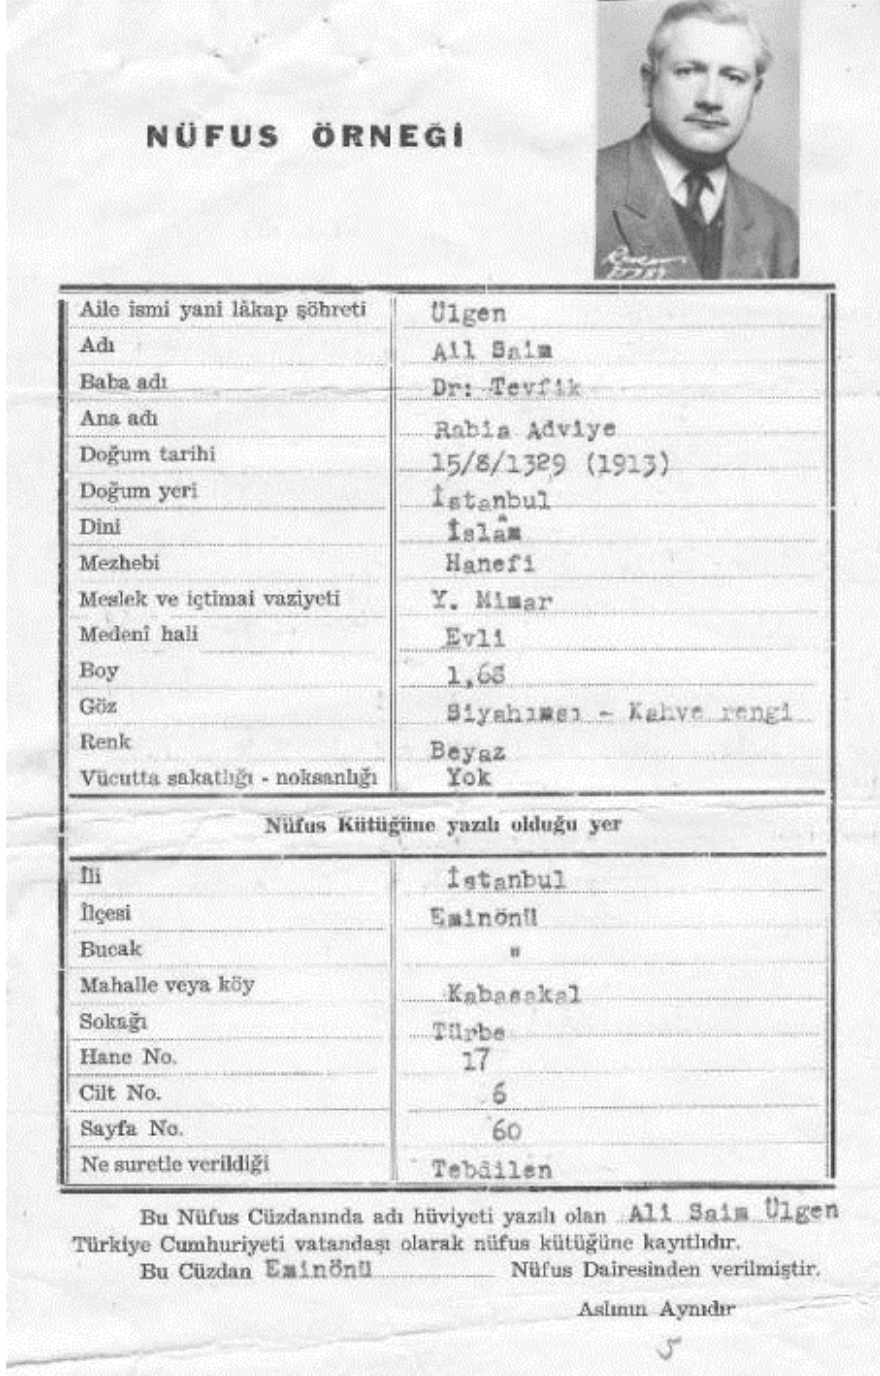 NÜFUS ÖRNEĞİ
Aile ismi yani lâkap şöhreti Ülgen
Adı Ali Saim
Baba adı Dr: Tevfik
Ana adı Rabia Adviye
Doğum tarihi 15/8/1329 (1913)
Doğum yeri İstanbul
Dini İslâm
Mezhebi Hanefi
Meslek ve içtimai vaziyeti Y. Mimar
Medenî hali Evli
Boy 1,68
Göz Siyahımsı - Kahve rengi
Renk Beyaz
Vücutta sakatlığı - noksanlığı Yok
Nüfus Kütüğüne yazılı olduğu yer
İli İstanbul
İlçesi Eminönü
Bucak "
Mahalle veya köy Kabasakal
Sokağı Türbe
Hane No. 17
Cilt No. 6
Sayfa No. 60
Ne suretle verildiği Tebdilen
Bu Nüfus Cüzdanında adı hüviyeti yazılı olan Ali Saim Ülgen
Türkiye Cumhuriyeti vatandaşı olarak nüfus kütüğüne kayıtlıdır.
Bu Cüzdan Eminönü Nüfus Dairesinden verilmiştir.
Aslının Aynıdır